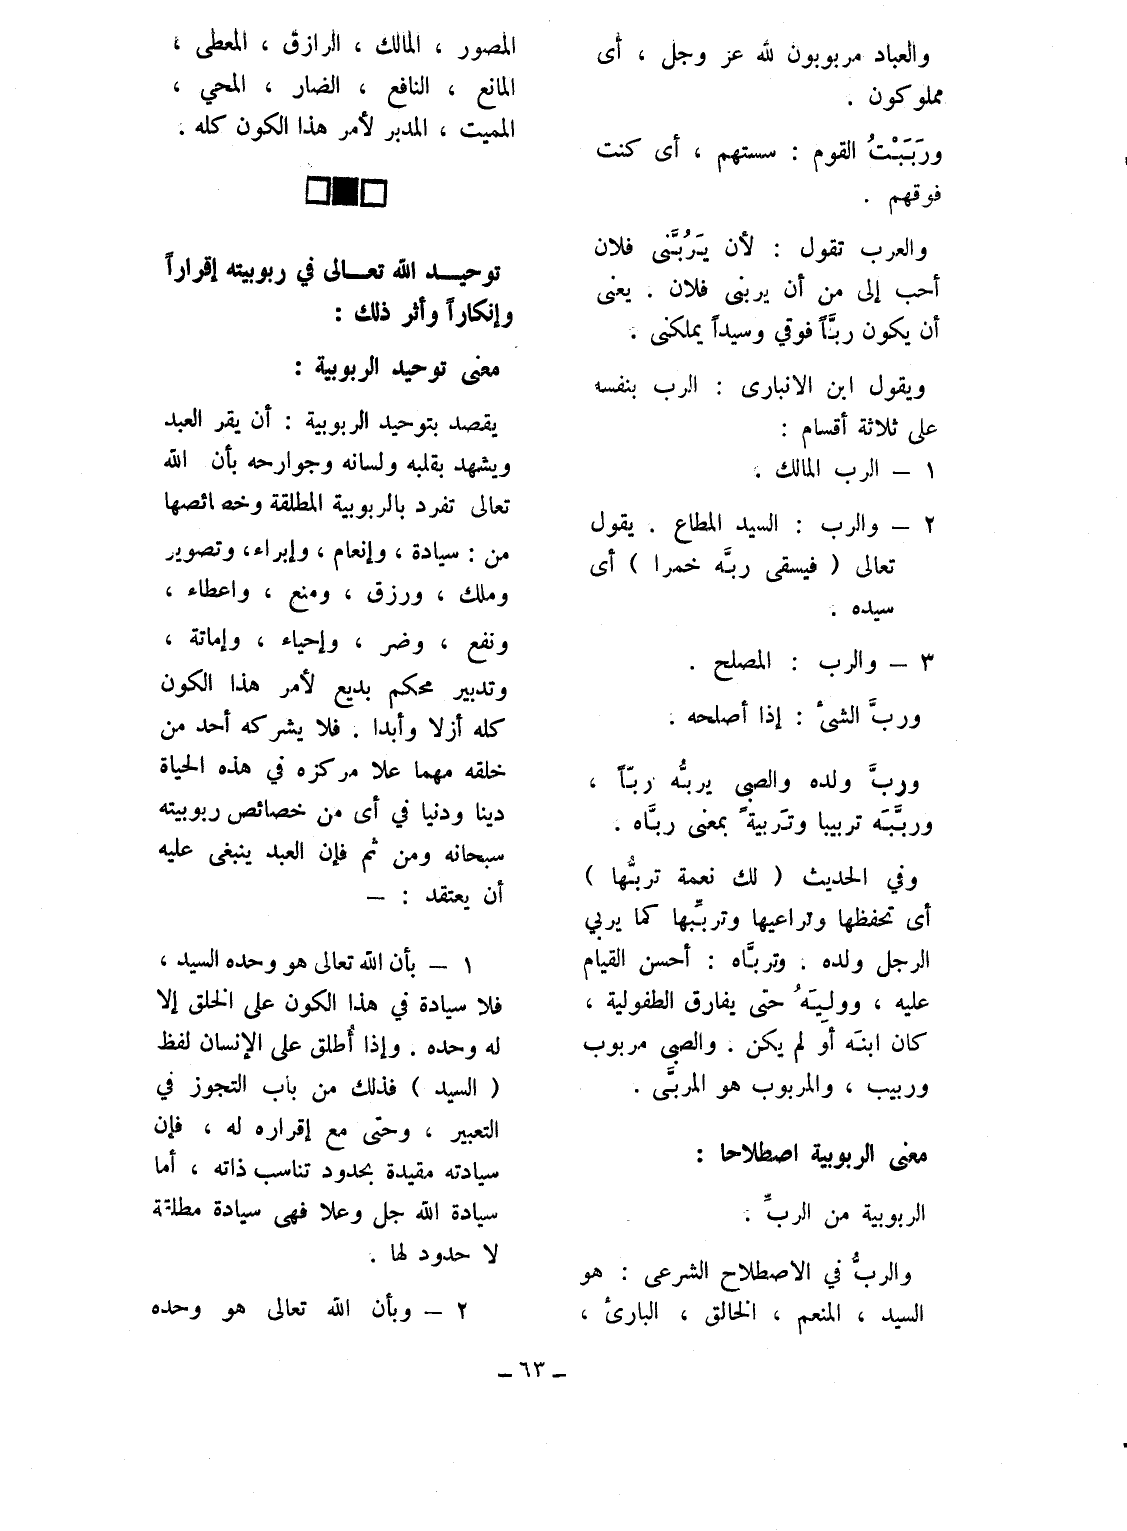 والعباد مربوبون لله عز وجل ، أى
مملوكون .
ورَبَبْتُ القوم : سستهم ، أى كنت
فوقهم .
والعرب تقول : لأن يَرُبَّنى فلان
أحب إلى من أن يربنى فلان . يعنى
أن يكون ربَّاً فوقي وسيداً يملكنى .
ويقول ابن الانبارى : الرب بنفسه
على ثلاثة أقسام :
١ – الرب المالك .
٢ – والرب : السيد المطاع . يقول
تعالى ( فيسقى ربَّه خمرا ) أى
سيده .
٣ – والرب : المصلح .
وربَّ الشئ : إذا أصلحه .
وربَّ ولده والصبي يربُّه ربّاً ،
وربَّبَه تربيبا وتَربيةً بمعنى ربَّاه .
وفي الحديث ( لك نعمة تربُّها )
أى تحفظها وتراعيها وتربِّبها كما يربي
الرجل ولده . وتربَّاه : أحسن القيام
عليه ، ووليَهُ حتى يفارق الطفولية ،
كان ابنَه أو لم يكن . والصبي مربوب
وربيب ، والمربوب هو المربَّى .
معنى الربوبية اصطلاحا :
الربوبية من الربِّ .
والربُّ في الاصطلاح الشرعى : هو
السيد ، المنعم ، الخالق ، البارئ ،
المصور ، المالك ، الرازق ، المعطى ،
المانع ، النافع ، الضار ، المحي ،
المميت ، المدبر لأمر هذا الكون كله .
توحيد الله تعالى في ربوبيته إقراراً
وإنكاراً وأثر ذلك :
معنى توحيد الربوبية :
يقصد بتوحيد الربوبية : أن يقر العبد
ويشهد بقلبه ولسانه وجوارحه بأن الله
تعالى تفرد بالربوبية المطلقة وخصائصها
من : سيادة ، وإنعام ، وإبراء، وتصوير
وملك ، ورزق ، ومنع ، واعطاء ،
ونفع ، وضر ، وإحياء ، وإماتة ،
وتدبير محكم بديع لأمر هذا الكون
كله أزلا وأبدا . فلا يشركه أحد من
خلقه مهما علا مركزه في هذه الحياة
دينا ودنيا في أى من خصائص ربوبيته
سبحانه ومن ثم فإن العبد ينبغى عليه
أن يعتقد : –
١ – بأن الله تعالى هو وحده السيد ،
فلا سيادة في هذا الكون على الخلق إلا
له وحده . وإذا أُطلق على الإنسان لفظ
( السيد ) فذلك من باب التجوز في
التعبير ، وحتى مع إقراره له ، فإن
سيادته مقيدة بحدود تناسب ذاته ، أما
سيادة الله جل وعلا فهى سيادة مطلقة
لا حدود لها .
٢ – وبأن الله تعالى هو وحده
– ٦٣ –